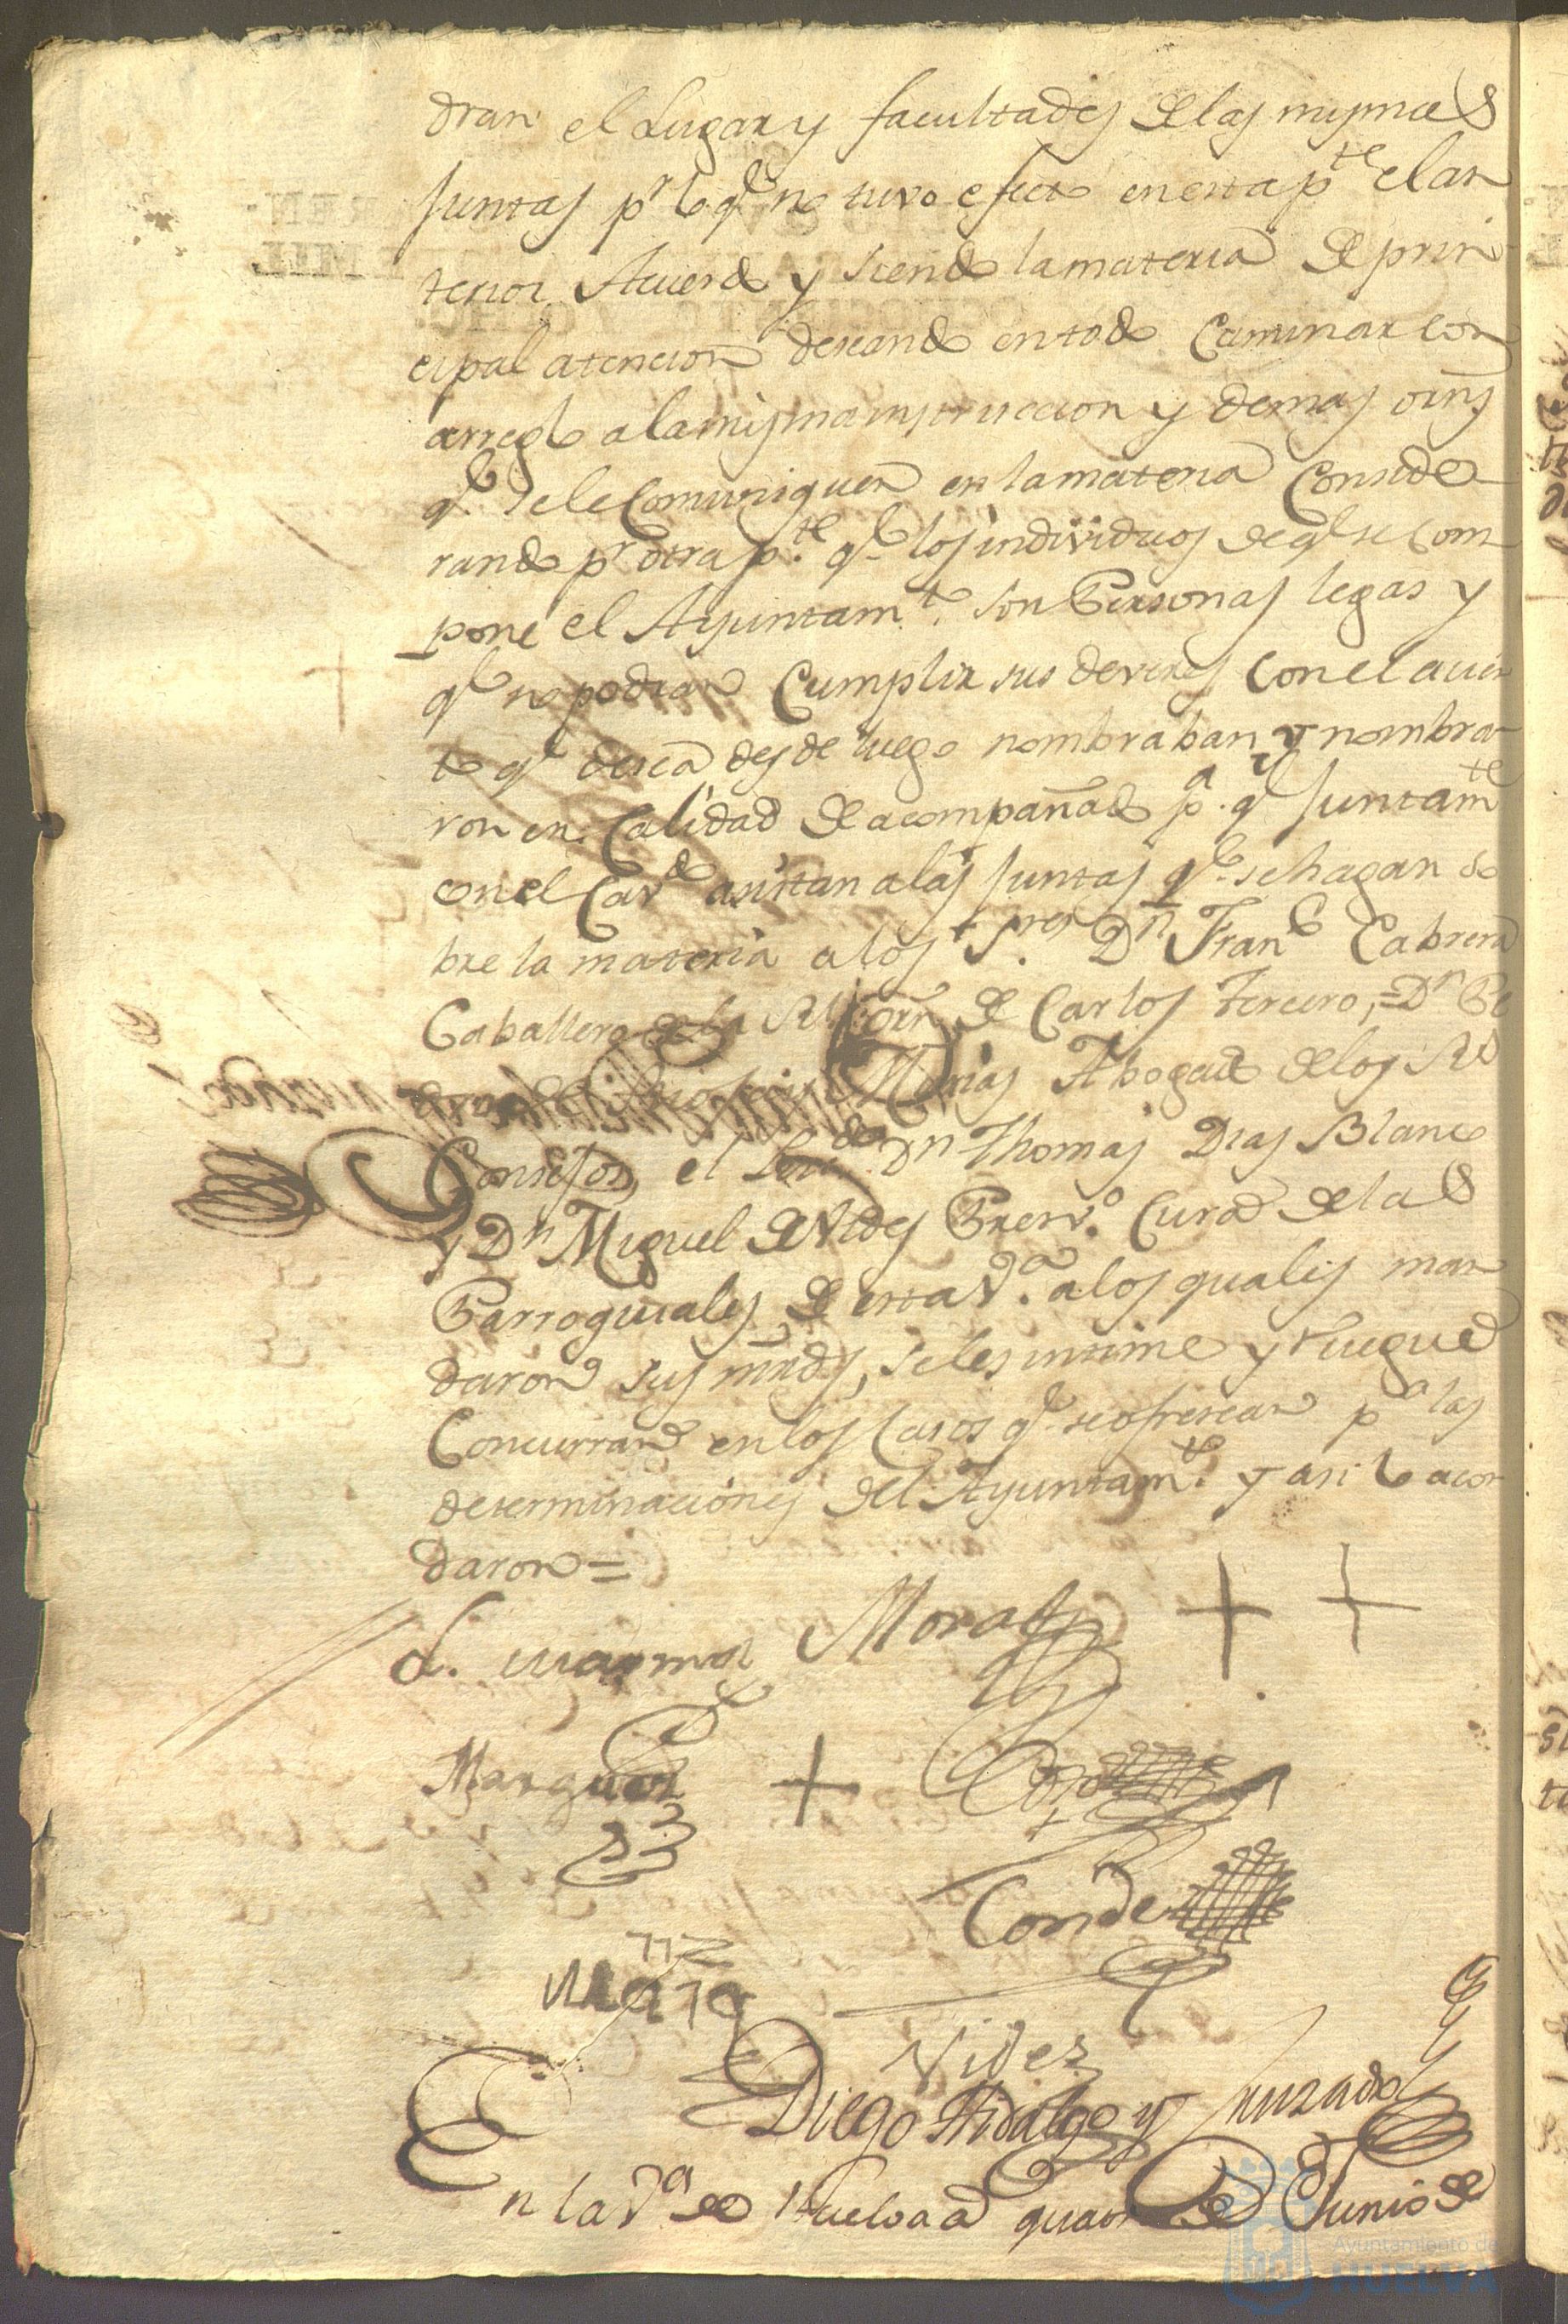 dran el Lugar y facultades de las mismas
Juntas pr lo qe no tuvo efecto en esta pte el an
terior Acuerdo y siendo la materia de prin
cipal atencion deseando en todo Caminar con
arreglo a la misma instruccion y demas orns
qe se le Comuniquen en la materia Conside
rando pr otra pte qe los individuos de qe se Com
pone el Ayuntamto son Personas legas y
qe no podran Cumplir sus deveres Con el acier
to qe desea desde luego nombraban y nombra
ron en Calidad de acompañados pa qe Juntamte
con el Cavdo asistan a las Juntas qe se hagan so
bre la materia a los Sres Dn Franco Cabrera
Caballero de la Rl orn de Carlos tercero, = Dn Pe
Marias Abogado de los Rs
Consejos, el Licdo Dn Thomas Dias Blanco
y Dn Miguel de Vides Presvo Cura de las
Parroquiales de esta Va a los quales man
daron sus mrds, se les intime y ruegue
Concurran en los Casos qe se ofrescan pa las
determinaciones del Ayuntamto y asi lo acor
daron =
Morales + +
Marquez + 
Conde
Vides
Diego Hidalgo y Junzado
En la Va de Huelva a quatro de Junio de
Ayuntamiento de
HUELVA